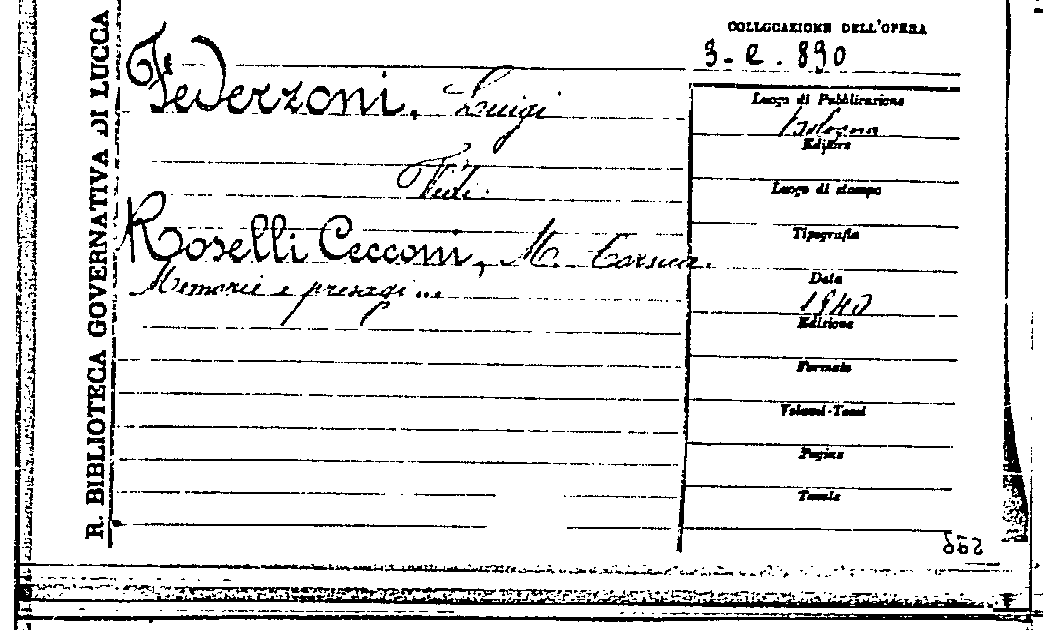 R. BIBLIOTECA GOVERNATIVA DI LUCCA
COLLOCAZIONE DELL'OPERA
3-e.890
Federzoni, Luigi
Vedi:
Roselli Cecconi, M. Corsica.
Memorie e presagi...
Luogo di Pubblicazione
Bologna
Editore
Luogo di stampa
Tipografia
Data
1940
Edizione
Formato
Volumi-Tomi
Pagine
Tavole